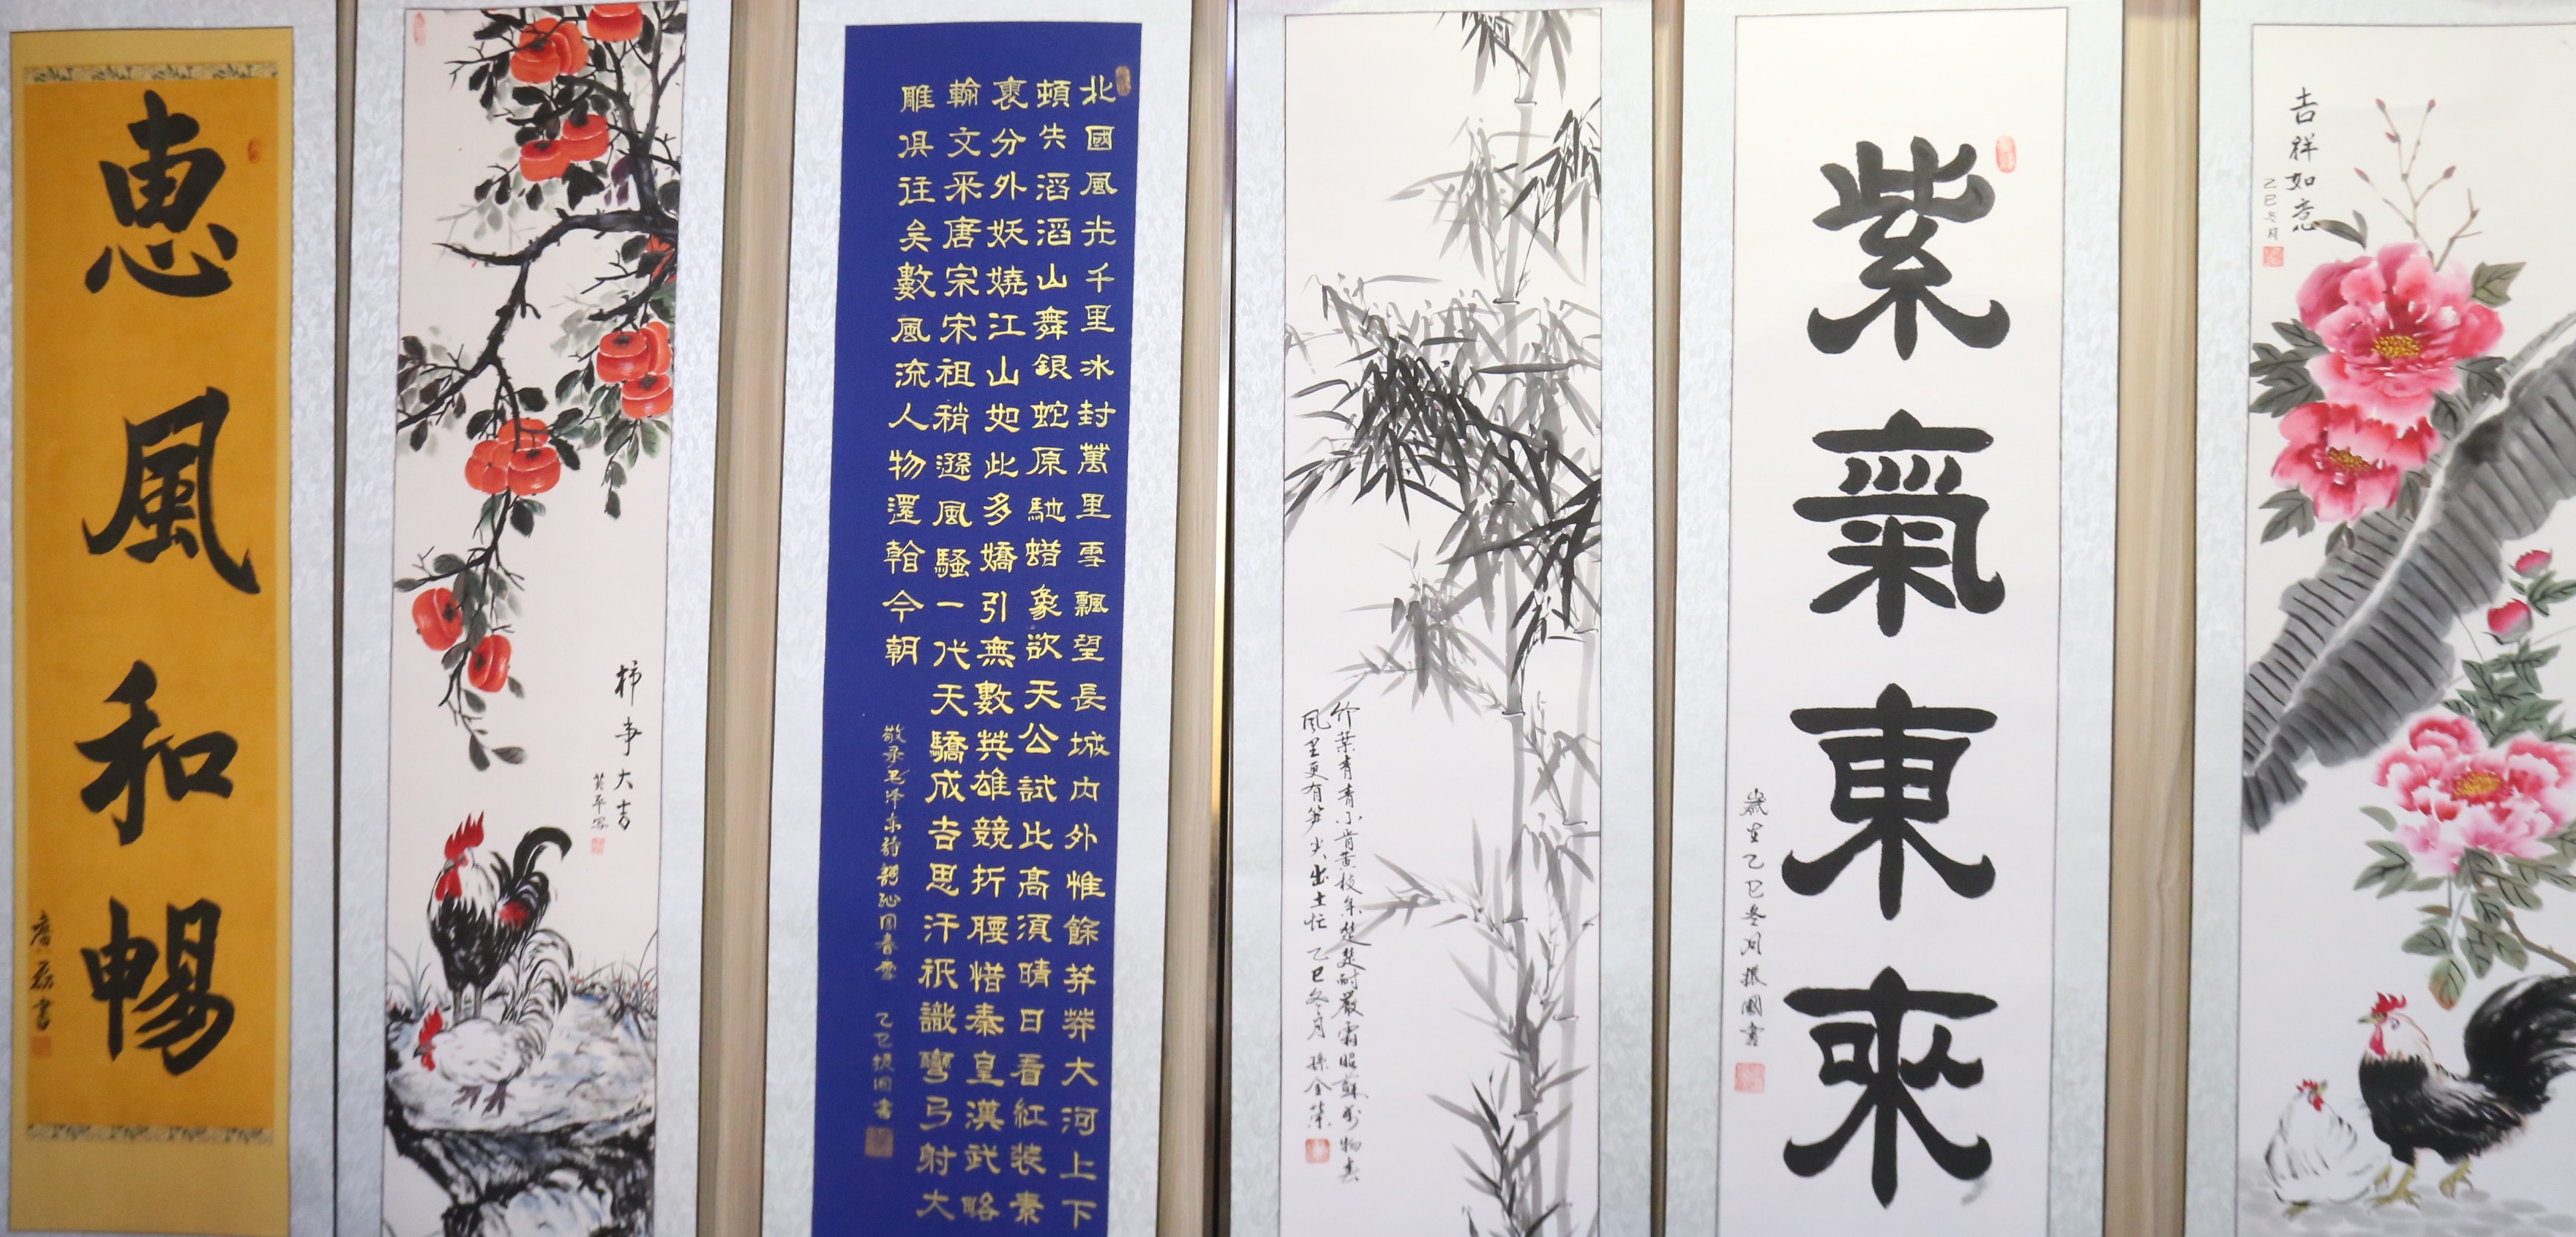 惠風和暢
廣磊書
柿事大吉
英平写
北國風光千里冰封萬里雪飄望長城內外惟餘莽莽大河上下
頓失滔滔山舞銀蛇原馳蜡象欲天公試比高須晴日看紅裝素
裹分外妖嬈江山如此多嬌引無數英雄競折腰惜秦皇漢武略
輸文采唐宗宋祖稍遜風騷一代天驕成吉思汗祇識彎弓射大
雕俱往矣數風流人物還看今朝
敬录毛泽东詩詞沁園春雪 乙巳振國書
竹葉青青不肯黃枝条楚楚耐嚴霜昭蘇萬物春
風里更有笋尖出土忙 乙巳冬月 孫金榮
紫氣東來
歲在乙巳冬月振國書
吉祥如意
乙巳冬月